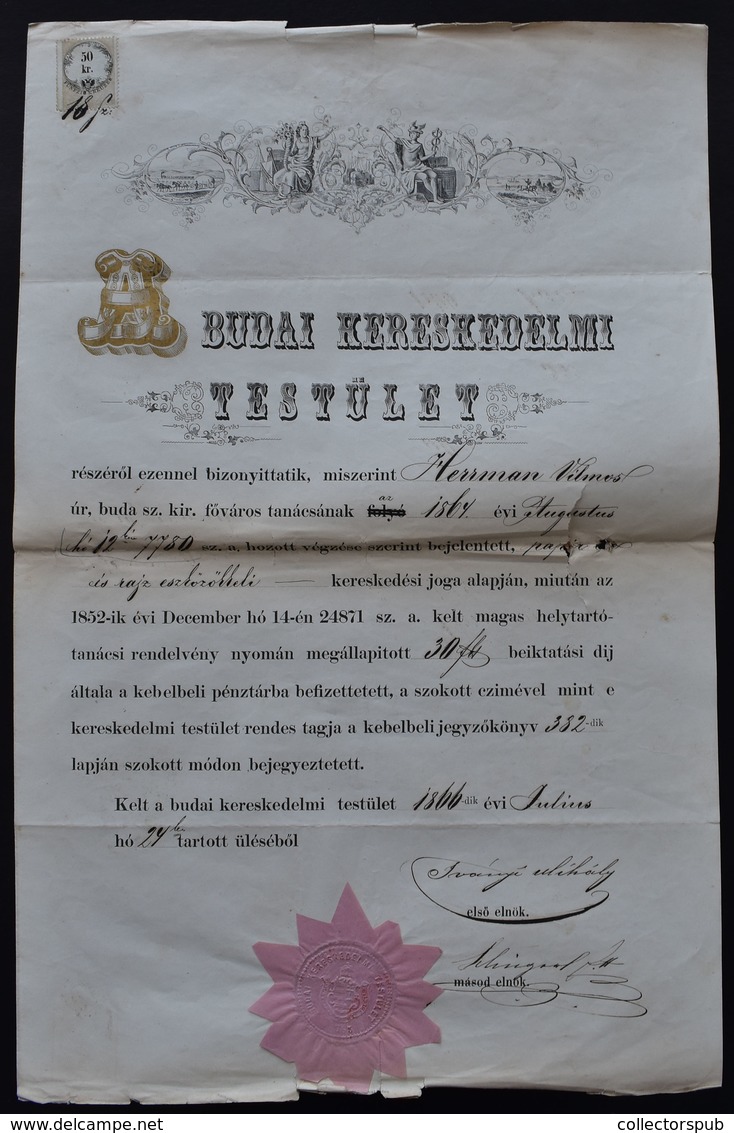 50
kr.
18
A BUDAI KERESKEDELMI
TESTÜLET
részéről ezennel bizonyittatik, miszerint Herrman Vilmos
úr, buda sz. kir. főváros tanácsának folyó az 1864. évi Augustus
hó 12 én 7780 sz. a. hozott végzése szerint bejelentett, papir
és rajz eszközökkeli — kereskedési joga alapján, miután az
1852-ik évi December hó 14-én 24871 sz. a. kelt magas helytartó-
tanácsi rendelvény nyomán megállapitott 30 ft beiktatási dij
általa a kebelbeli pénztárba befizettetett, a szokott czimével mint e
kereskedelmi testület rendes tagja a kebelbeli jegyzőkönyv 382-dik
lapján szokott módon bejegyeztetett.
Kelt a budai kereskedelmi testület 1866-dik évi Julius
hó 24 én tartott üléséből
Iványi Mihály
első elnök.
másod elnök.
collectorspub